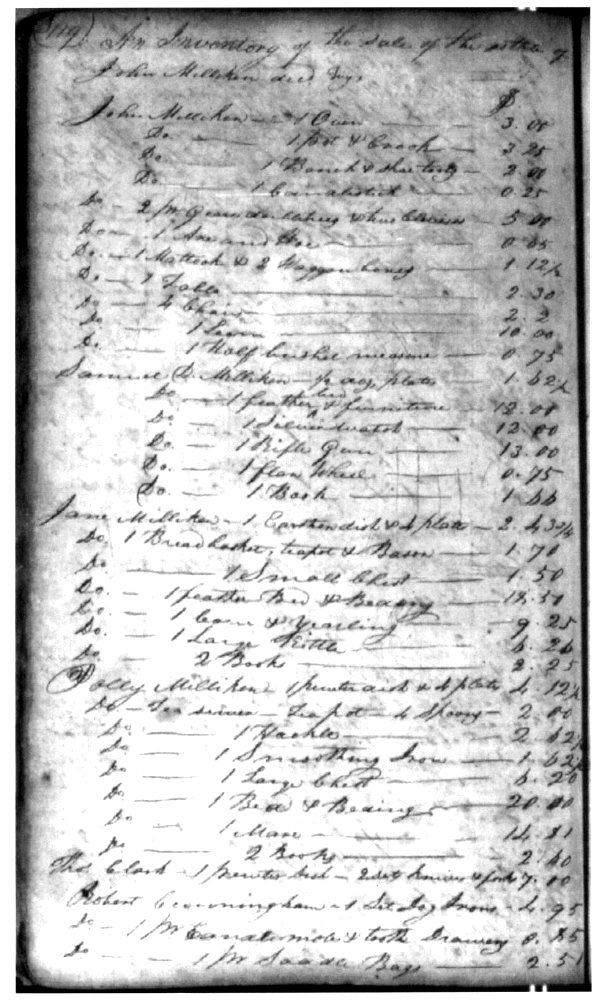 119) An Inventory of the Sale of the estate of
John Milliken decd Viz.
$
John Milliken — 1 Oven — 3.00
Do. — 1 pot & Crook — 3 25
Do. — 1 Bench & — 2 00
Do. — 1 Candlestick — 0.25
Do — 2 pr Gears — 5 00
Do — 1 Axe and Hoe — 0.05
Do — 1 Mattock & 2 Waggon — 1.12½
Do. — 1 Table — 2.30
Do — 4 Chairs — 2.2
Do — 1 — 10.00
Do. — 1 Half bushel measure — 0.75
Samuel D. Milliken — plates — 1.62½
Do — 1 feather bed & furniture — 12.00
Do. — 1 Silver watch — 12.00
Do. — 1 Rifle Gun — 13.00
Do. — 1 flax Wheel — 0.75
Do. — 1 Book — 1.44
Jane Milliken — 1 Earthen dish & 4 plates — 2.43¾
Do. 1 Breadbasket, teapot & Bason — 1.70
Do — 1 Small Chest — 1.50
Do. — 1 feather Bed & Beding — 18.50
Do. — 1 Cow & Yearling — 9.25
Do. — 1 Large Kittle — 4.26
Do — 2 Books — 2.25
Polly Milliken — 1 pewter dish & 4 plates 4.12½
Do — Tea — Teapot — 4 Spoons — 2 00
Do. — 1 Hackle — 2 62½
Do — 1 Smoothing Iron — 1.62½
Do — 1 Large Chest — 4.20
Do — 1 Bed & Beding — 20.00
Do — 1 Mare — 14.81
Do — 2 Books — 2.40
Thos Clark — 1 pewter dish — 2 sets knives & forks 7.00
Robert Cunningham — 1 Set Dog Irons — 4.95
Do — 1 pr & tooth Drawers 0.85
Do — 1 pr Saddle Bags — 2.51